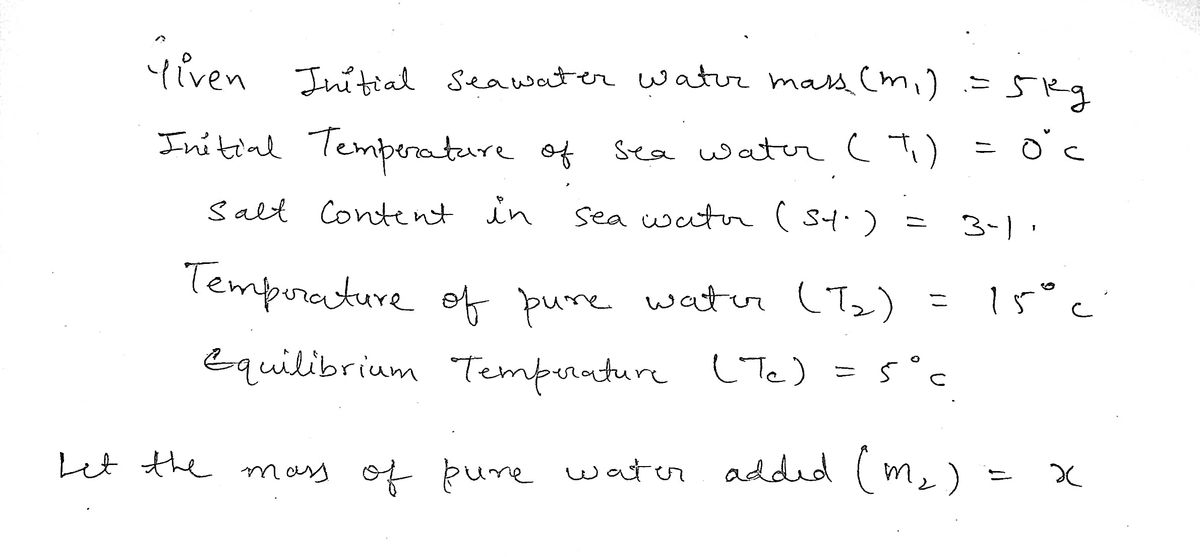 Given Initial seawater water mass (m₁) = 5 kg
Initial Temperature of sea water (T₁) = 0°c
Salt Content in sea water (S%) = 3%
Temperature of pure water (T₂) = 15°c
Equilibrium Temperature (Te) = 5°c
Let the mass of pure water added (m₂) = x